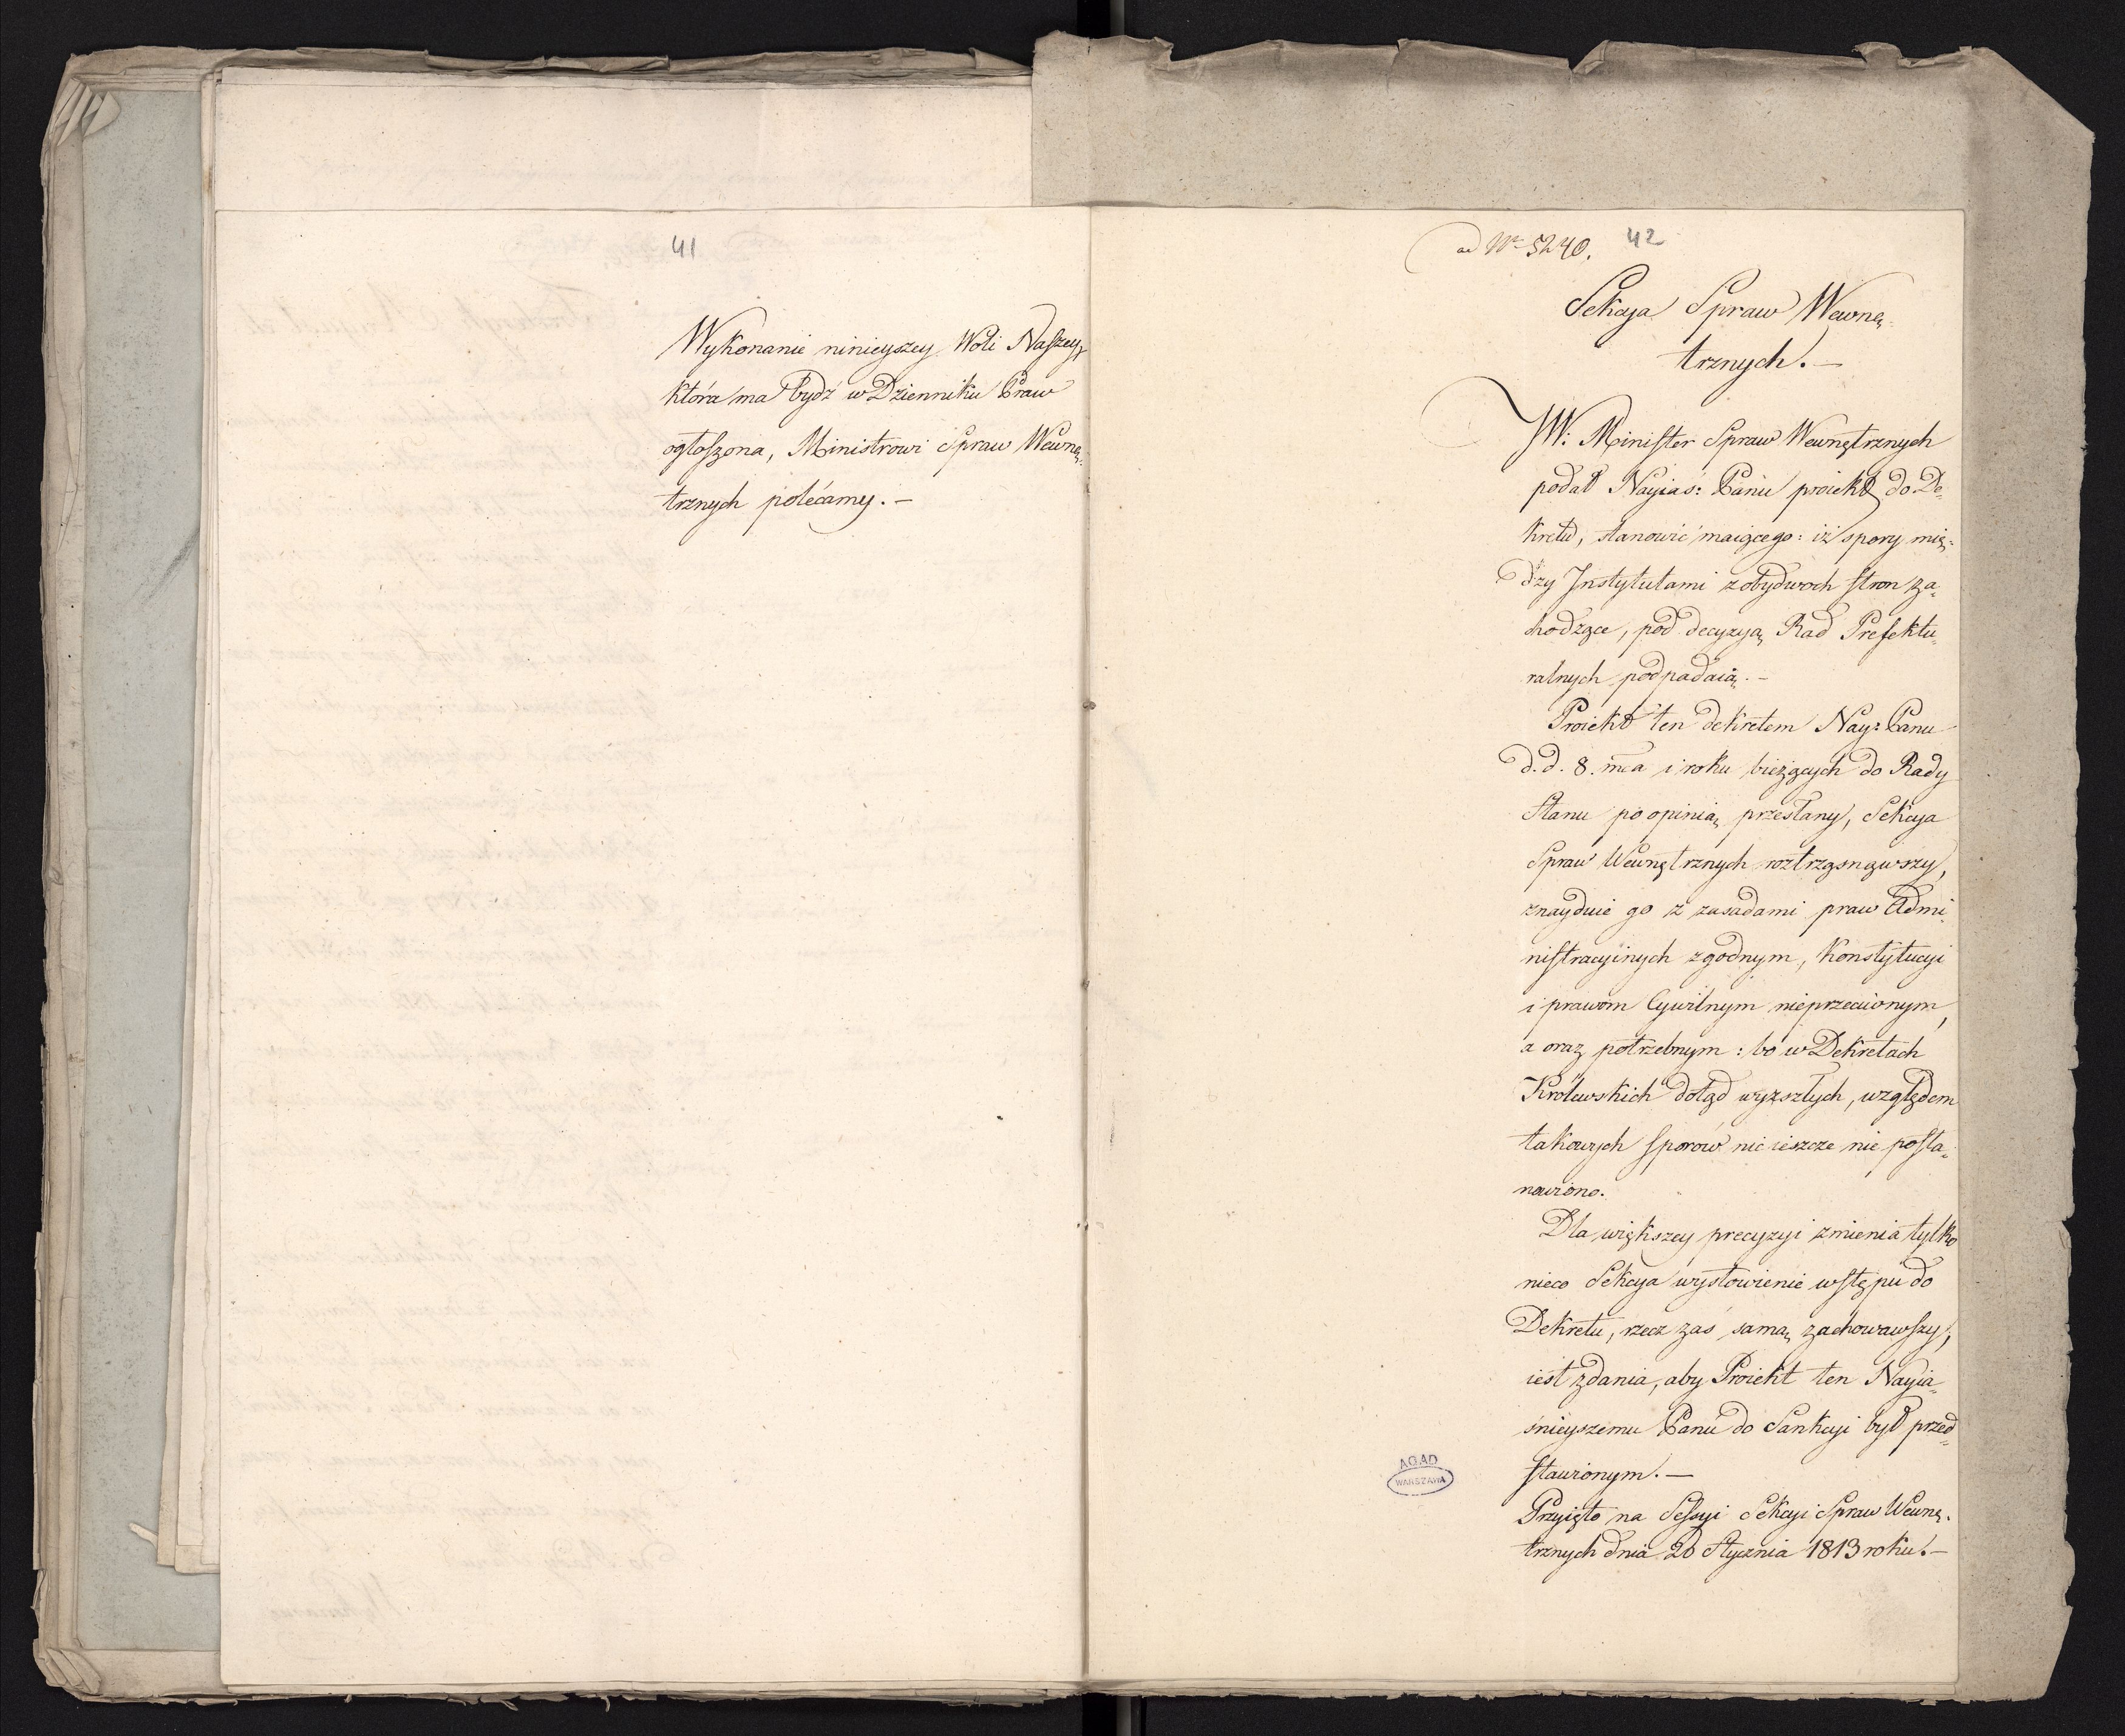 41
Wykonanie ninieyszey Woli Naszey,
która ma bydź w Dzienniku Praw
ogłoszona, Ministrowi Spraw Wewnę-
trznych polecamy. —
ad Nr 5240.
42
Sekcya Spraw Wewnę-
trznych. —
JW: Minister Spraw Wewnętrznych
podał Nayias: Panu proiekt do De-
kretu, stanowić maiącego: iż spory mię-
dzy Instytutami z obydwoch stron za-
chodzące, pod decyzyą Rad Prefektu-
ralnych podpadaią. —
Proiekt ten dekretem Nay: Panu
d. d. 8. mca i roku bieżących do Rady
Stanu po opinią przesłany, Sekcya
Spraw Wewnętrznych roztrząsnąwszy,
znayduie go z zasadami praw Admi-
nistracyinych zgodnym, Konstytucyi
i prawom Cywilnym nieprzeciwnym,
a oraz potrzebnym: bo w Dekretach
Królewskich dotąd wyszłych, względem
takowych sporów nic ieszcze nie posta-
nowiono.
Dla większey precyzyi zmienia tylko
nieco Sekcya wysłowienie wstępu do
Dekretu, rzecz zaś samą zachowawszy,
iest zdania, aby Proiekt ten Nayia-
śnieyszemu Panu do Sankcyi był przed-
stawionym. —
Przyięto na Sessyi Sekcyi Spraw Wewnę-
trznych dnia 20 Stycznia 1813 roku. —
AGAD
WARSZAWA